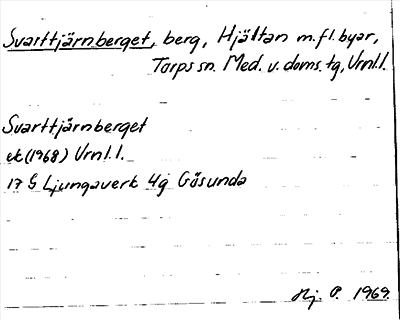 Svarttjärnberget, berg, Hjältan m.fl. byar,
Torps sn. Med. v. doms. tg, Vrnl.l.
Svarttjärnberget
ek (1968) Vrnl.l.
17 G Ljungaverk 4g Gösunda
Hj. P. 1969.